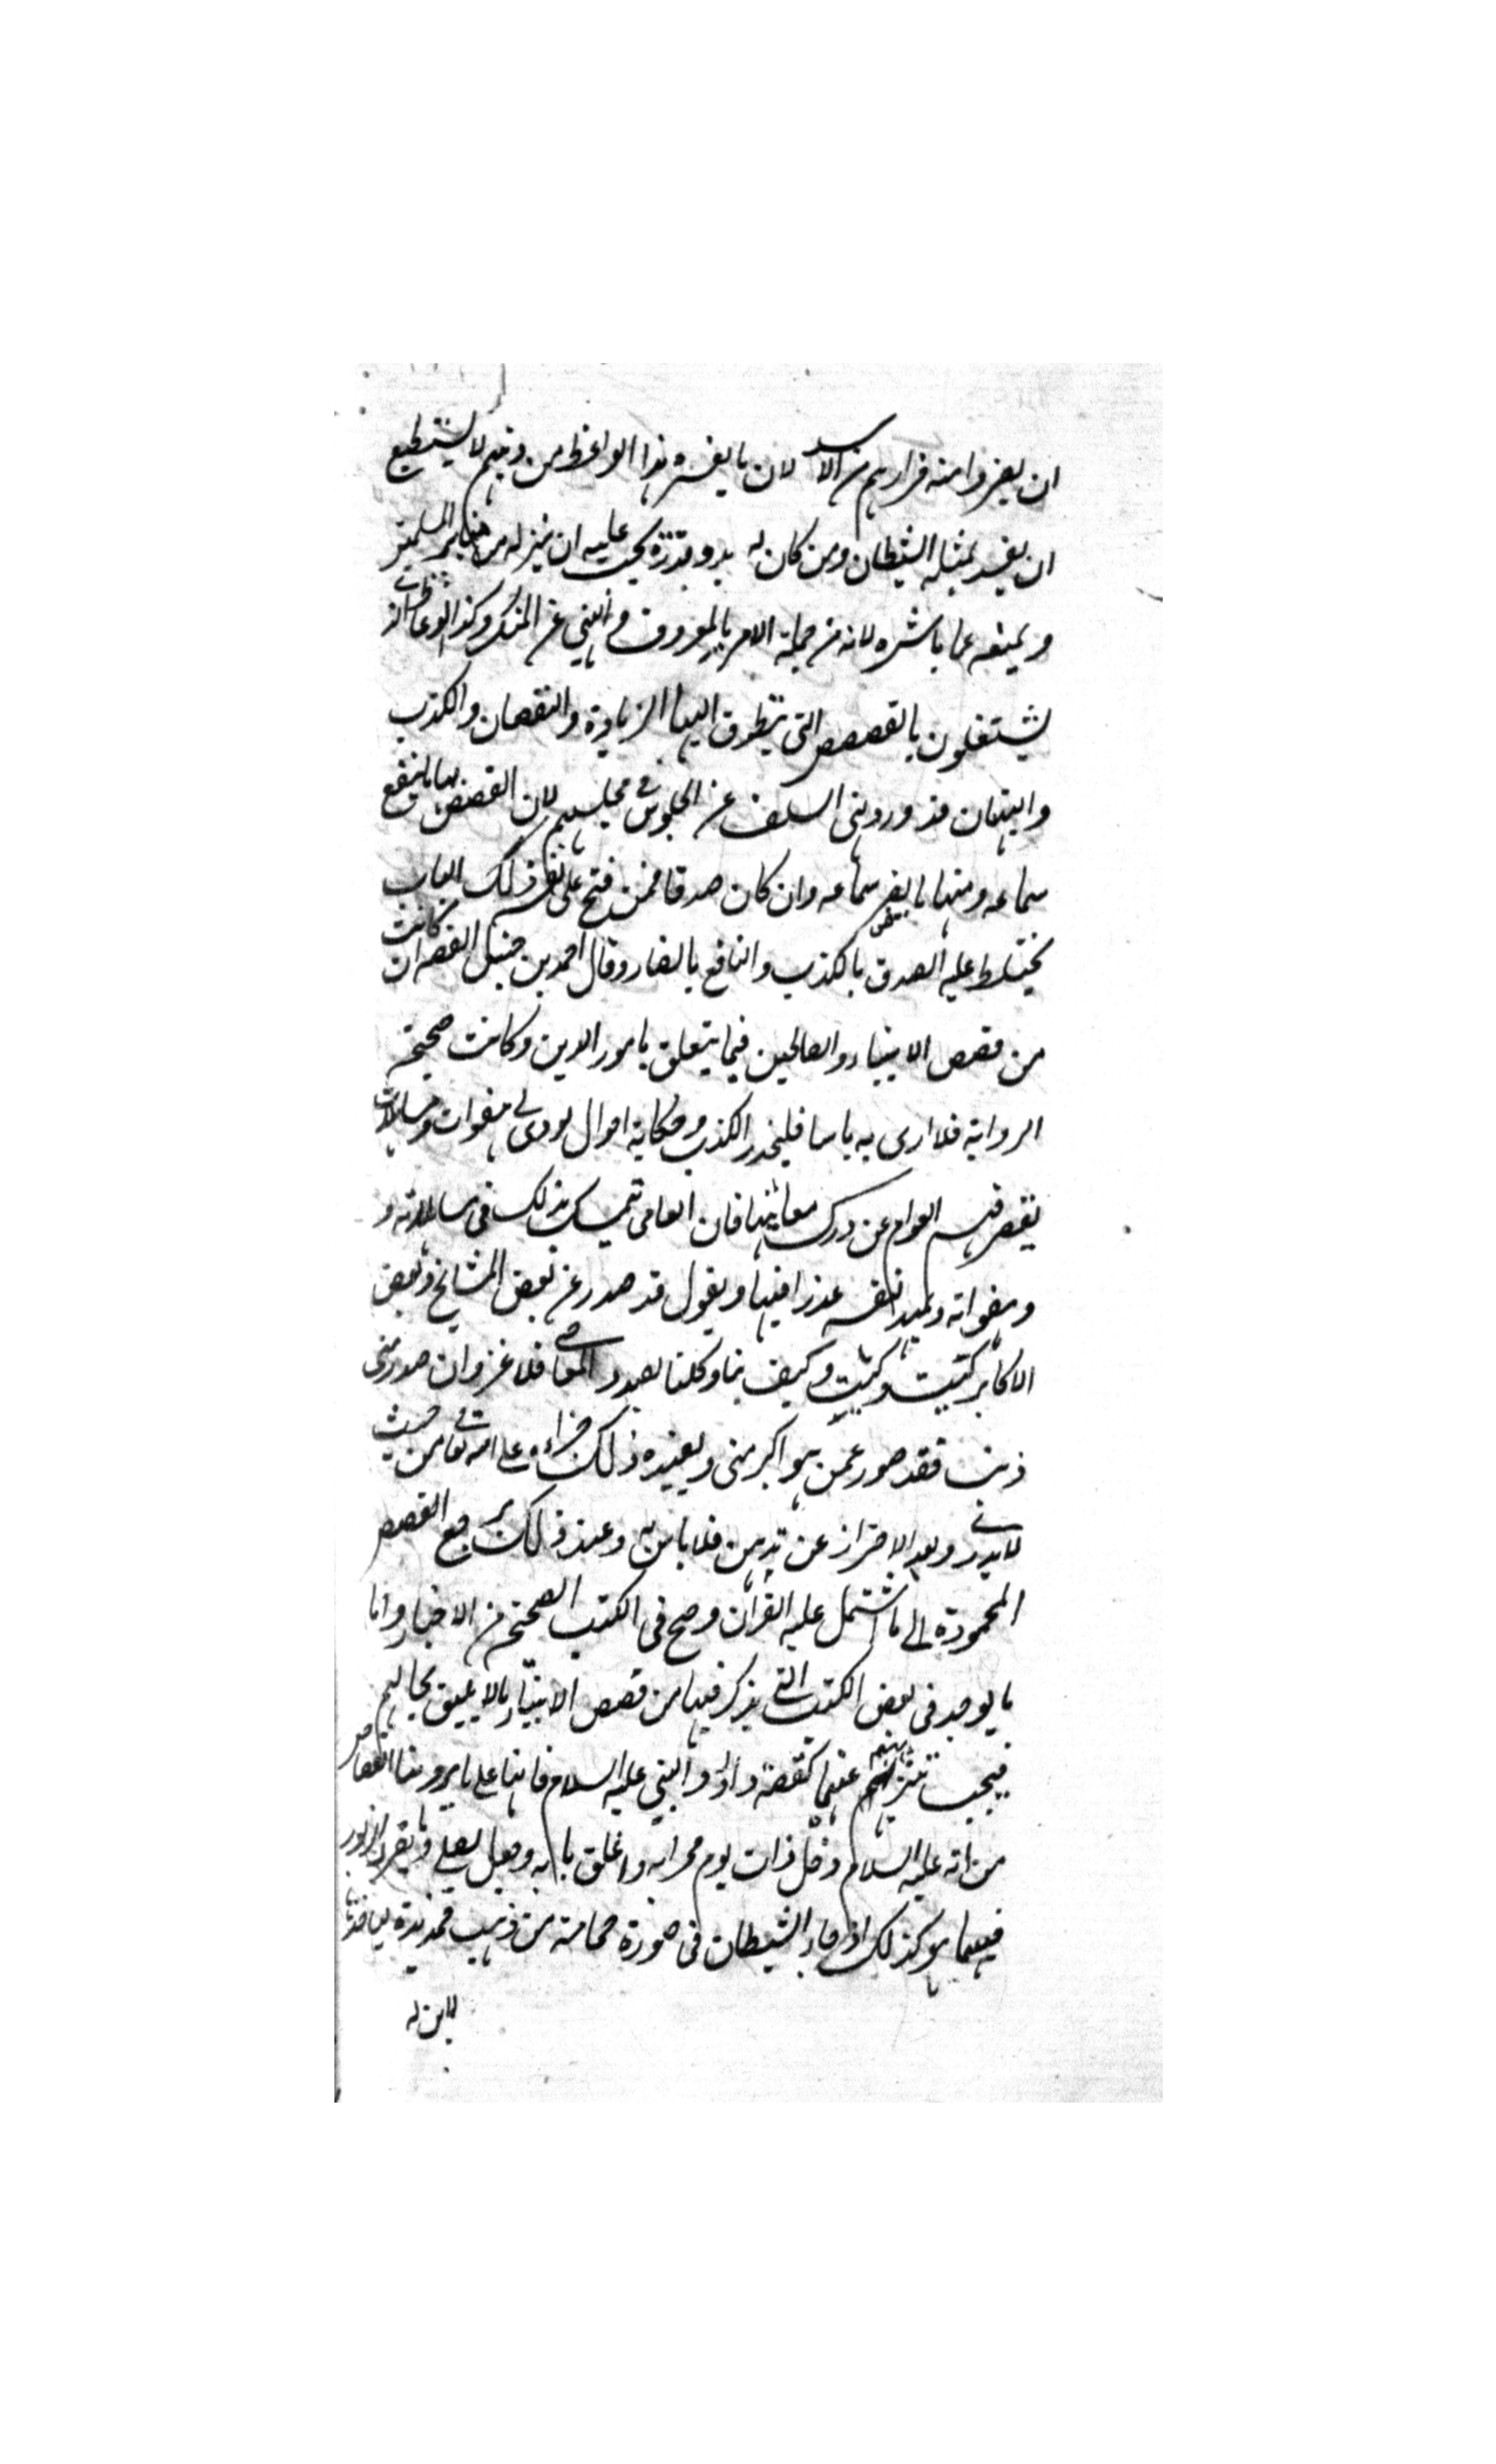 ان يفروا منه فرارهم من الاسد لان ما يفسده هذا الواعظ من دينهم لا يستطيع
ان يفسد بمثله الشيطان ومن كان له يد وقدرة يجب عليه ان ينزله من منابر المسلمين
ويمنعه عما باشره لانه من جملة الامر بالمعروف والنهي عن المنكر وكذا الوعاظ الذين
يشتغلون بالقصص التي يتطرق اليها الزيادة والنقصان والكذب
والبهتان قد ورد نهي السلف عن الجلوس في مجلسهم لان القصص منها ما ينفع
سماعه ومنها ما يضر سماعه وان كان صدقا فمن فتح على نفسه ذلك الباب
يختلط عليه الصدق بالكذب والنافع بالضار وقال احمد بن حنبل القصة ان كانت
من قصص الانبياء والصالحين فيما يتعلق بامور الدين وكانت صحيحة
الرواية فلا ارى به باسا فليحذر الكذب وحكاية احوال يودي الى هفوات ومساهلات
يقصر فهم العوام عن درك معانيها فان العامي يتمسك بذلك في مساهلاته و
وهفواته ويمهد لنفسه عذرا فيها ويقول قد صدر عن بعض المشايخ وبعض
الاكابر كيت وكيت وكيف بنا وكلنا بصدد المعاصي فلا غرو ان صدر مني
ذنب فقد صدر عمن هو اكبر مني ويفيده ذلك جراءة على الله تعالى من حيث
لا يدري وبعد الاحتراز عن هذين فلا باس به وعند ذلك يرجع القصص
المحمودة الى ما اشتمل عليه القرآن وصح في الكتب الصحيحة من الاخبار واما
ما يوجد في بعض الكتب التي يذكر فيها من قصص الانبياء ما لا يليق بحالهم
فيجب تنزيههم عنها كقصة داود النبي عليه السلام فانها على ما يرويها القصاص
من انه عليه السلام دخل ذات يوم محرابه واغلق بابه وجعل يصلي ويقرء الزبور
فبينما هو كذلك اذ جاء الشيطان في صورة حمامة من ذهب فمد يده لياخذها
لابن له